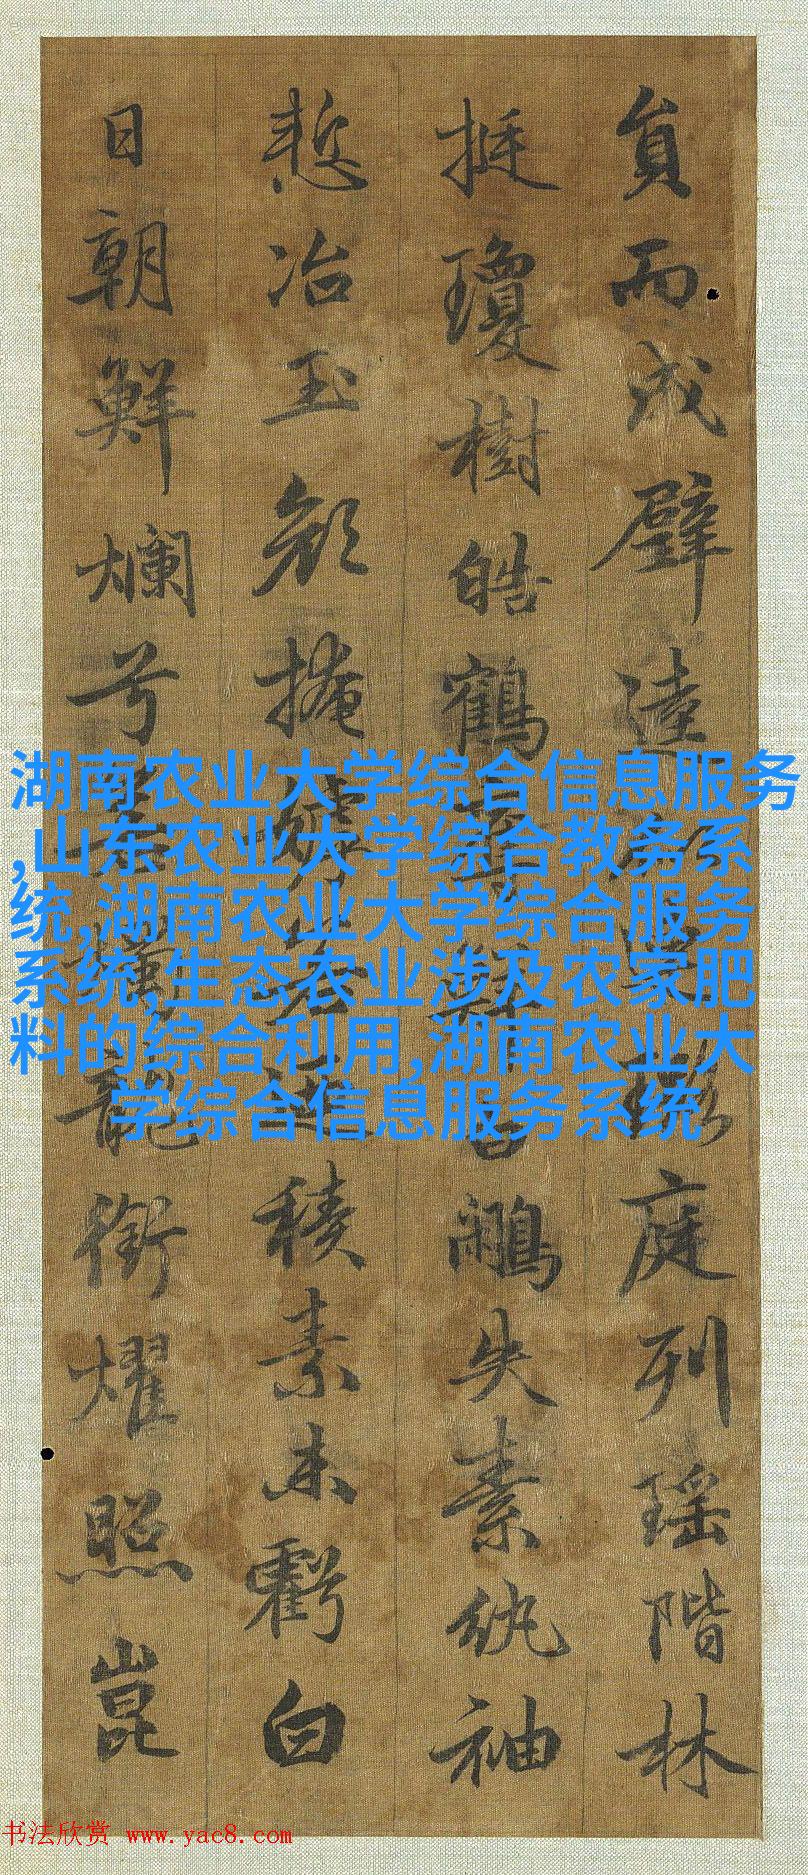 員而成璧逵庭列瑶階林
挺瓊樹皓鶴鷴失素紈袖
慙冶玉顏掩積素未虧白
日朝鮮爛兮龍銜耀照崑
湖南农业大学综合信息服务
,山东农业大学综合教务系
统,湖南农业大学综合服务
系统,生态农业涉及农家肥
料的综合利用,湖南农业大
学综合信息服务系统
书法欣赏 www.yac8.com